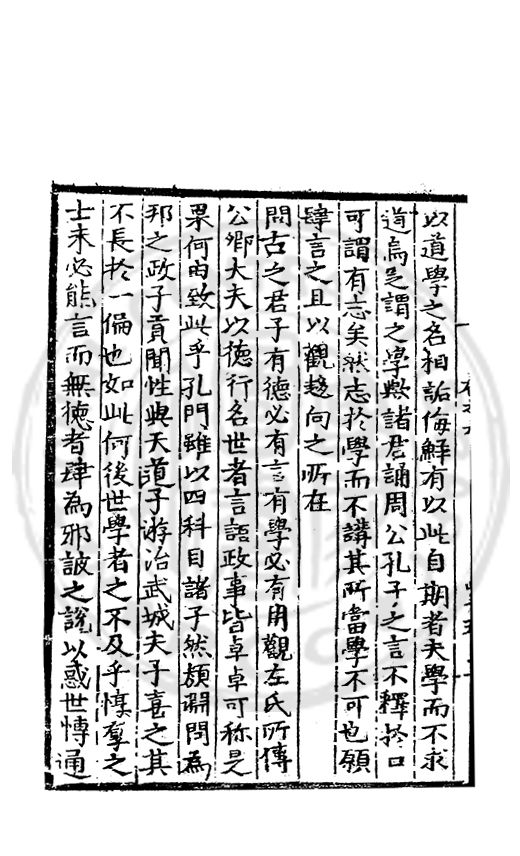 以道學之名相詬侮鮮有以此自期者夫學而不求
道烏足謂之學與諸君誦周公孔子之言不釋於口
可謂有志矣然志於學而不講其所當學不可也願
肆言之且以觀趍向之所在
問古之君子有德必有言有學必有用觀左氏所傳
公卿大夫以德行名世者言語政事皆卓卓可称是
果何由致此乎孔門雖以四科目諸子然顏淵問為
邦之政子貢聞性與天道子游治武城夫子喜之其
不長於一偏也如此何後世學者之不及乎惇厚之
士未必能言而無德者肆為邪詖之說以惑世慱通